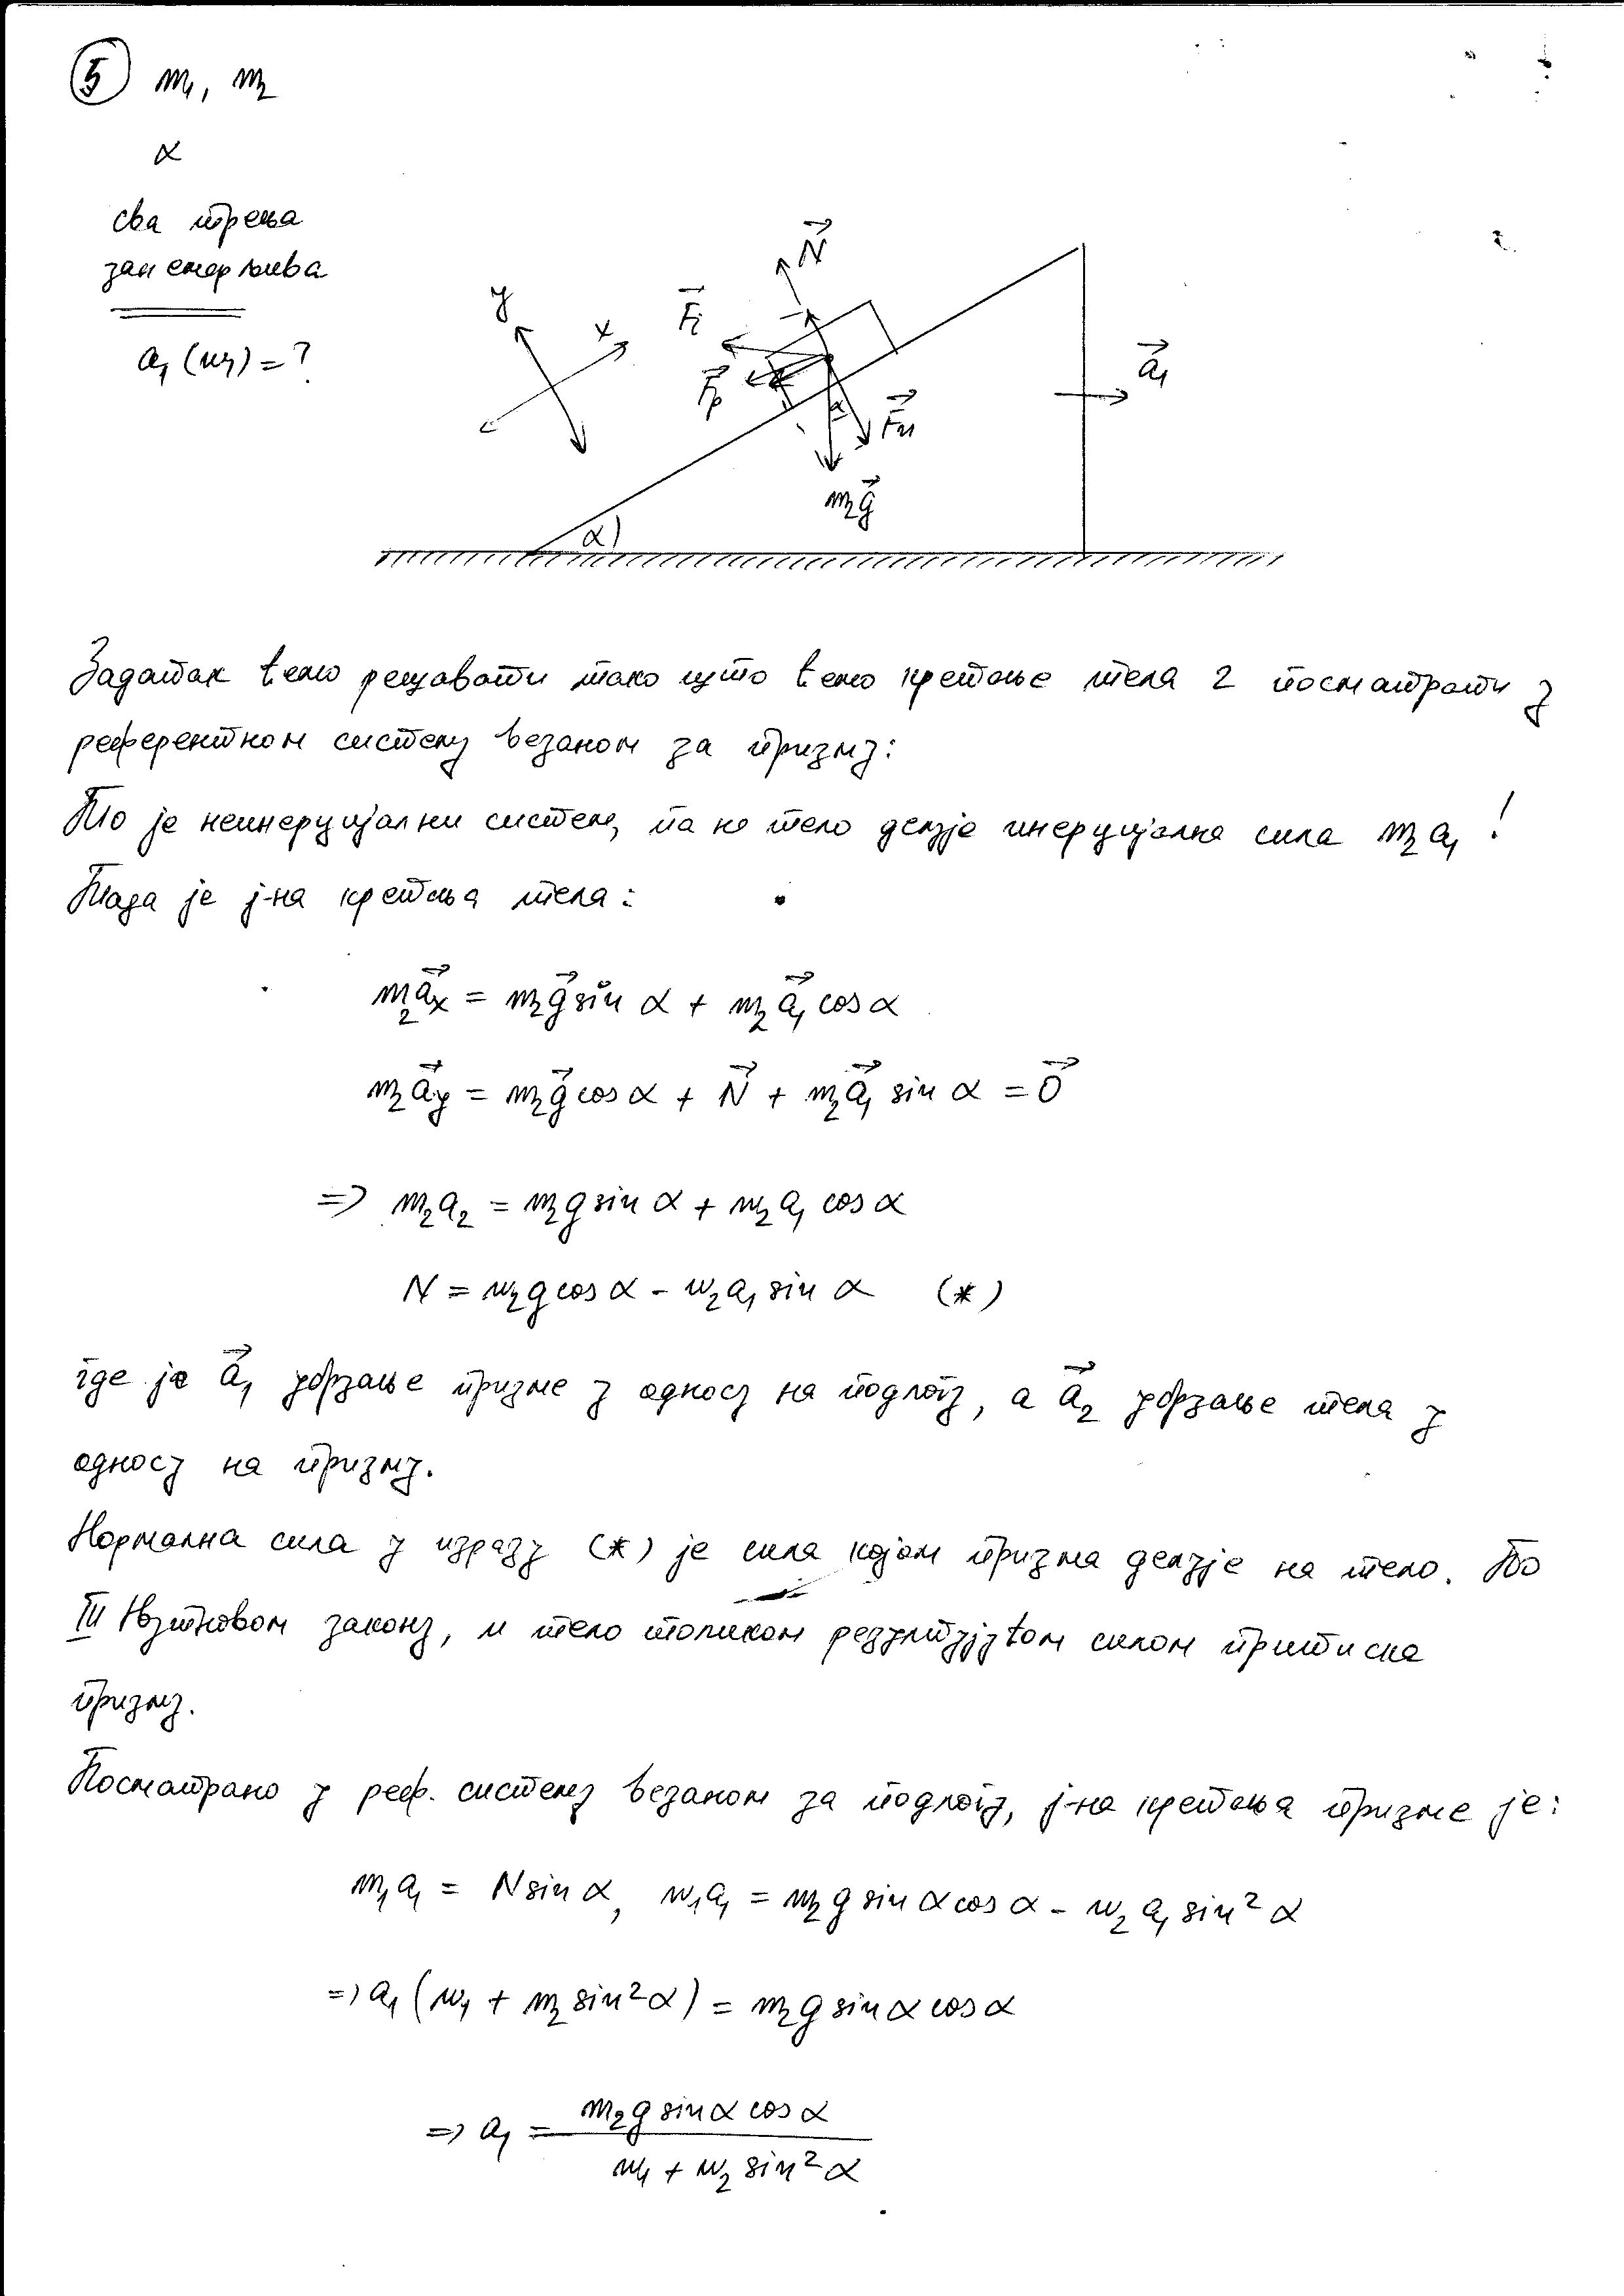 5 m₁, m₂
α
сва трења
занемарљива
a₁ (m₁) = ?
y
x
N⃗
F⃗i
F⃗p
α
F⃗n
m₂g⃗
a⃗₁
α
Задатак ћемо решавати тако што ћемо кретање тела 2 посматрати у
референтном систему везаном за призму:
То је неинерцијални систем, па на тело делује инерцијална сила m₂a₁ !
Тада је ј-на кретања тела:
m₂a⃗x = m₂g⃗ sin α + m₂a⃗₁ cos α
m₂a⃗y = m₂g⃗ cos α + N⃗ + m₂a⃗₁ sin α = 0⃗
=> m₂a₂ = m₂g sin α + m₂a₁ cos α
N = m₂g cos α - m₂a₁ sin α (*)
где је a⃗₁ убрзање призме у односу на подлогу, а a⃗₂ убрзање тела у
односу на призму.
Нормална сила у изразу (*) је сила којом призма делује на тело. По
III Њутновом закону, и тело толиком резултујућом силом притиска
призму.
Посматрано у реф. систему везаном за подлогу, ј-на кретања призме је:
m₁a₁ = N sin α, m₁a₁ = m₂g sin α cos α - m₂a₁ sin² α
=> a₁ (m₁ + m₂ sin² α) = m₂g sin α cos α
=> a₁ = m₂g sin α cos α / m₁ + m₂ sin² α